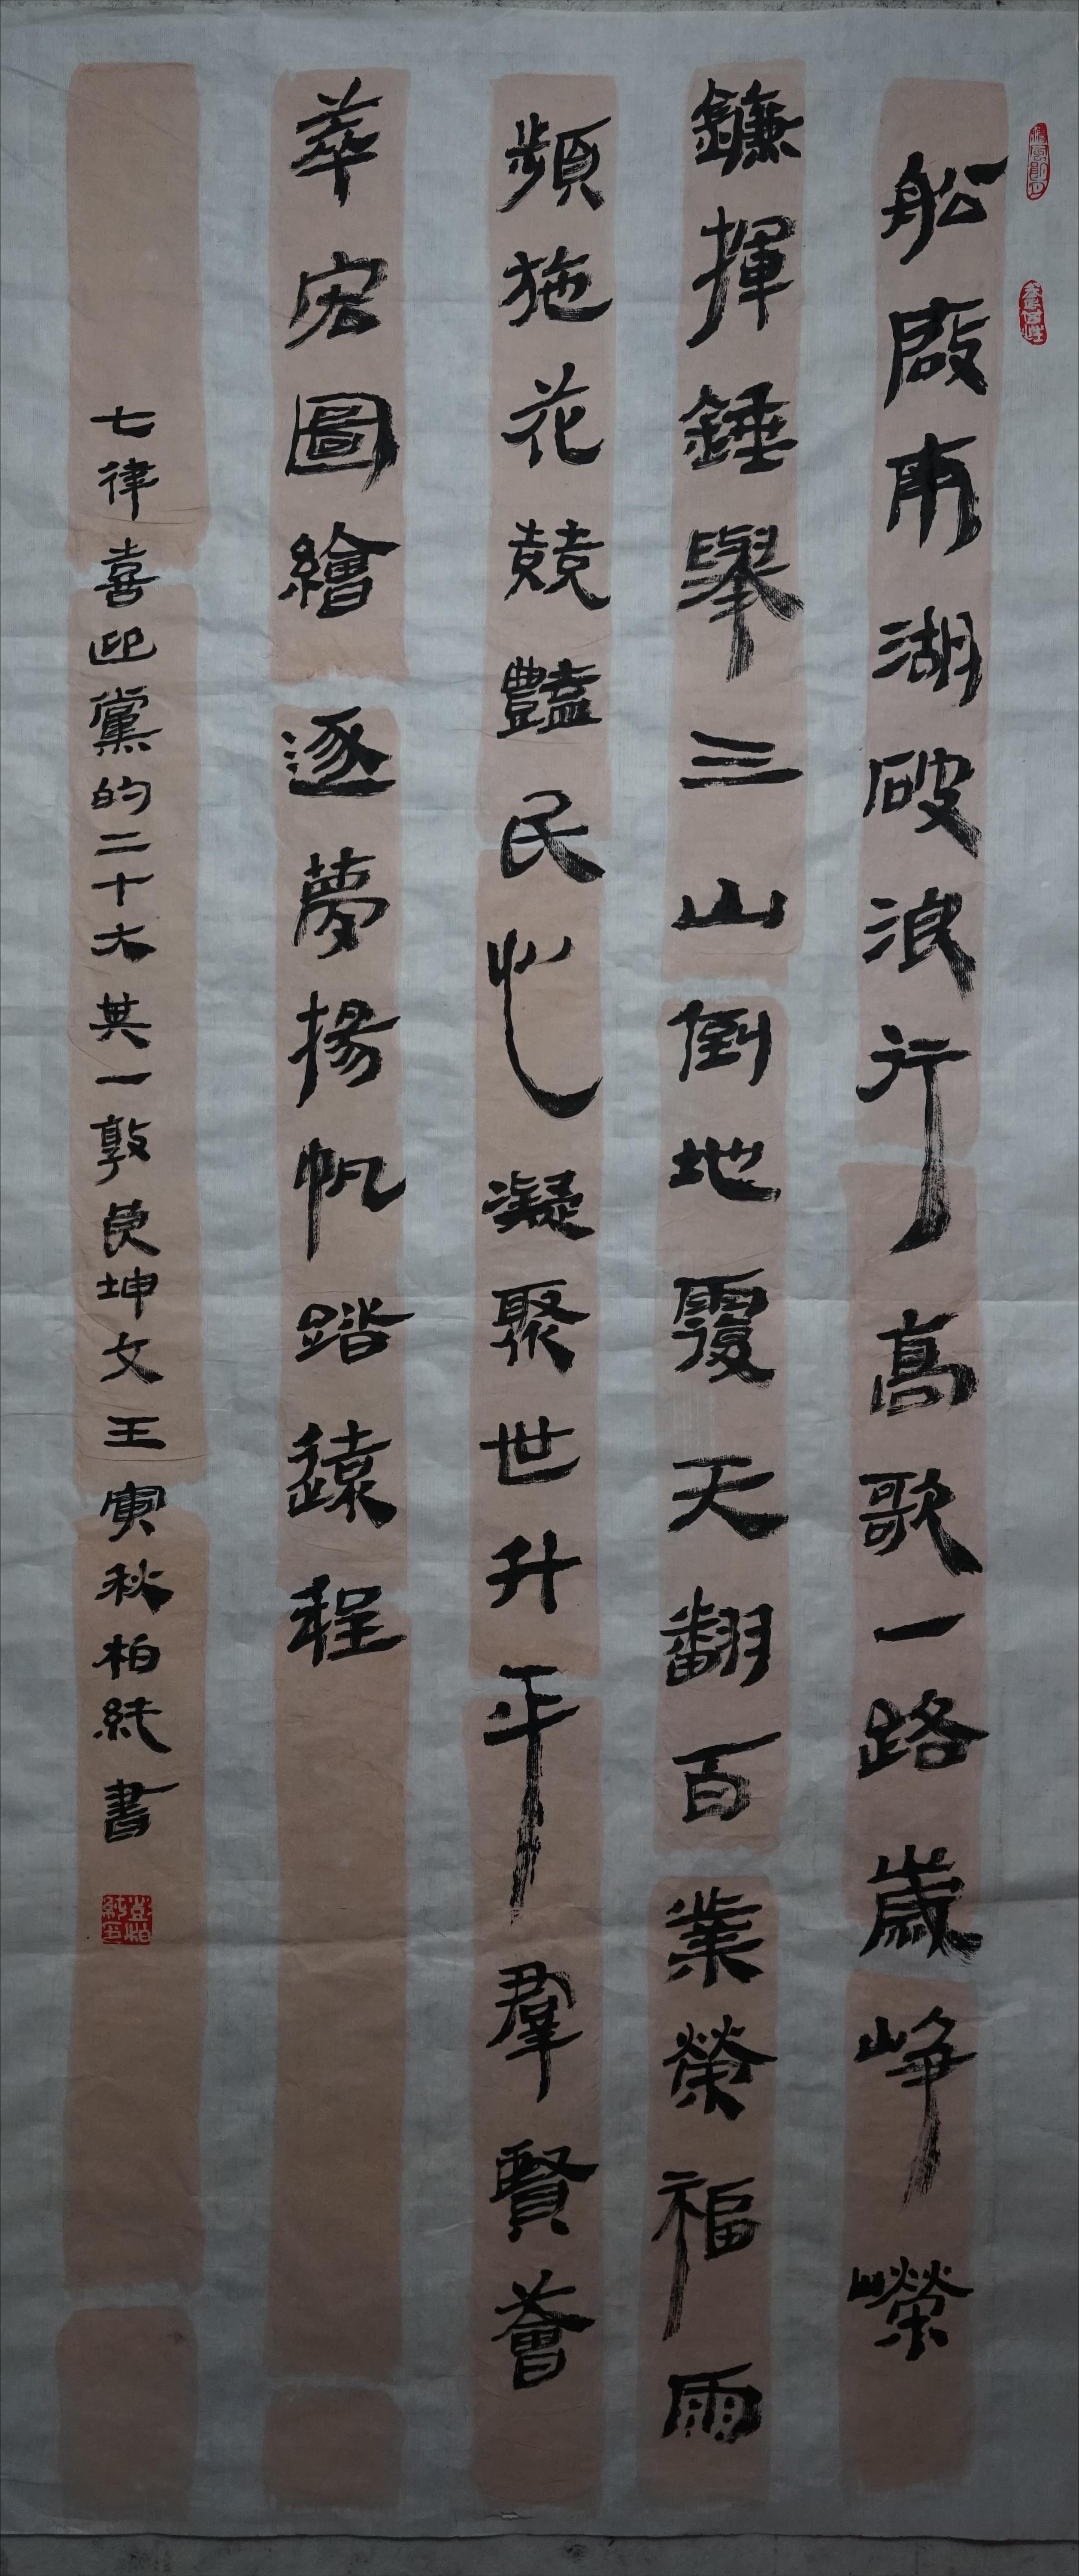 船啟南湖破浪行高歌一路歲崢嶸
鐮揮錘舉三山倒地覆天翻百業榮福雨
頻施花競豔民心凝聚世升平群賢薈
萃宏圖繪逐夢揚帆踏遠程
七律喜迎黨的二十大其一敦煌坤文王寅秋柏純書